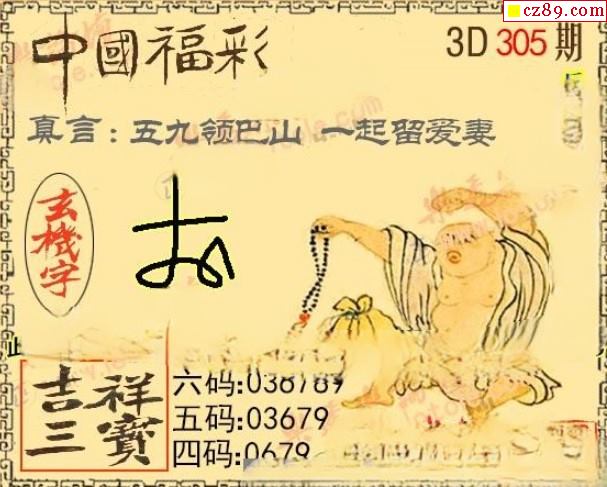 cz89.com
中國福彩
3D 305 期
真言：五九领巴山 一起留爱妻
玄機字
吉祥三寶
六码:036789
五码:03679
四码:0679